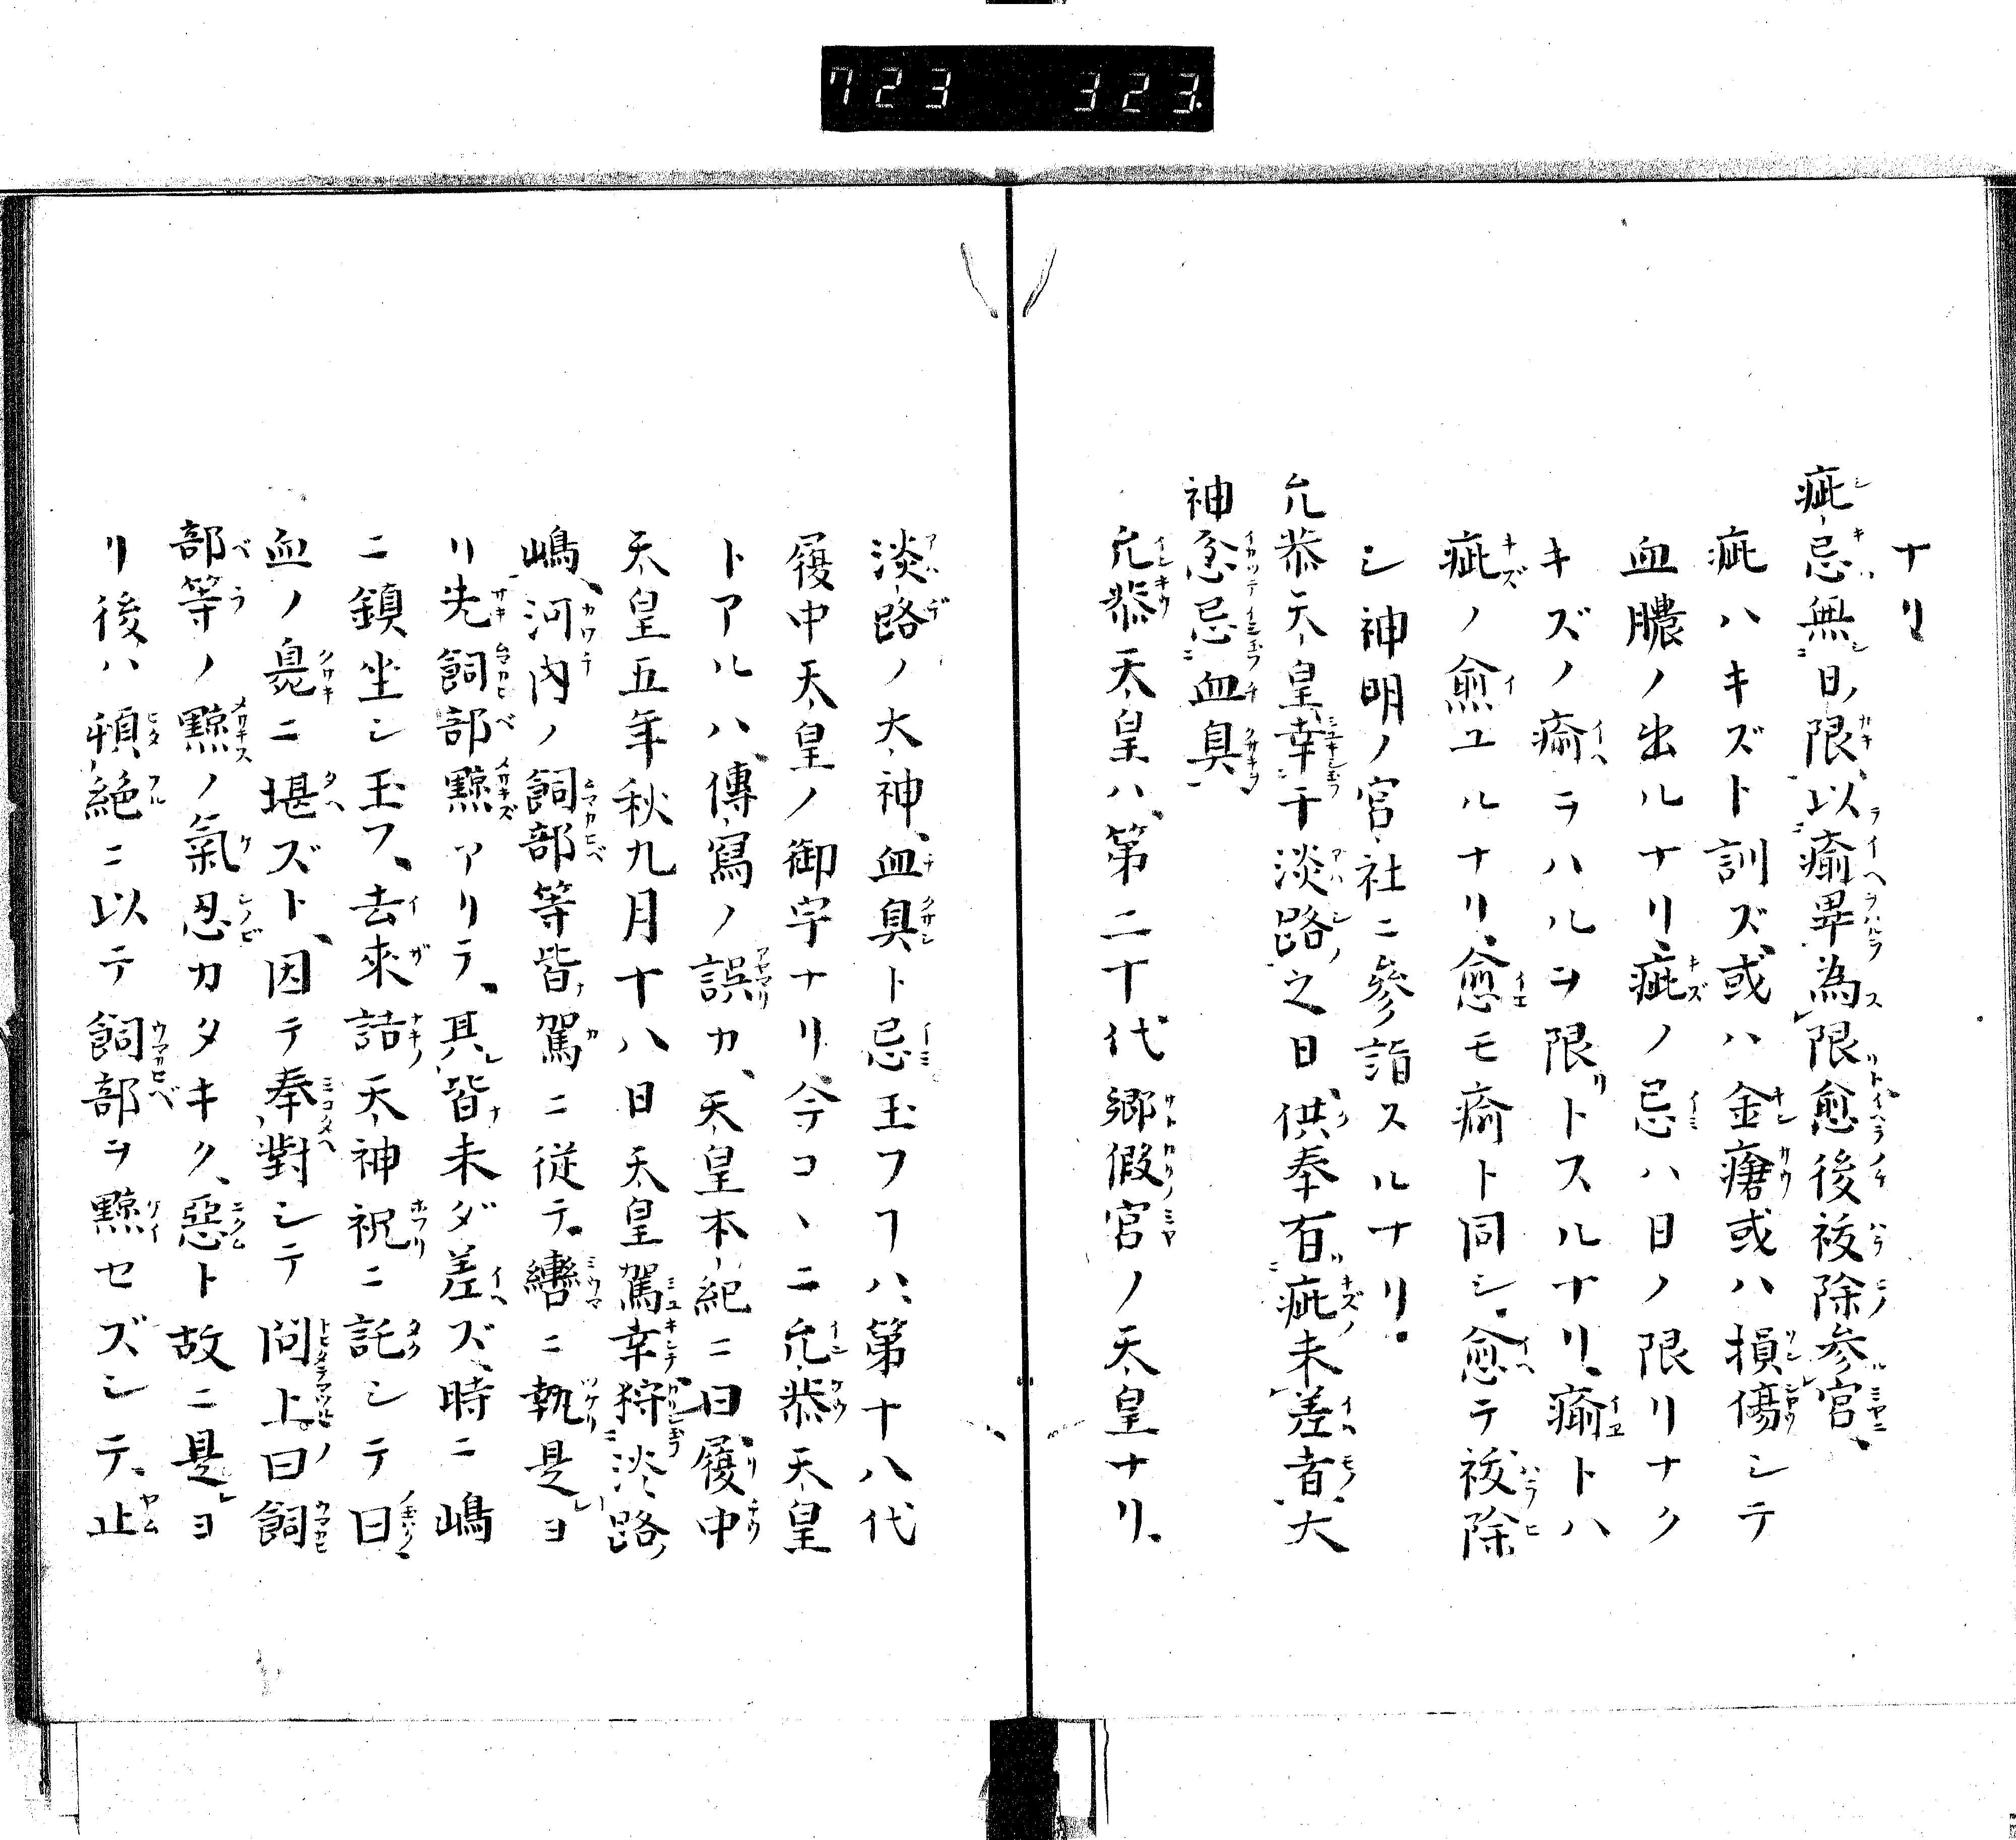 723 323.
ナリ
疵忌無日限以癒畢為限愈後祓除参宮、
疵ハキズト訓ズ、或ハ金瘡或ハ損傷シテ
血膿ノ出ルナリ、疵ノ忌ハ日ノ限リナク
キズノ癒ヲハルヲ限リトスルナリ、癒トハ
疵ノ愈ユルナリ、愈モ癒ト同シ、愈テ祓除
シ神明ノ宮社ニ參詣スルナリ。
允恭天皇幸干淡路之日供奉有疵未差者大
神忿忌血臭
允恭天皇ハ、第二十代郷假宮ノ天皇ナリ、
淡路ノ大神、血臭ト忌玉フヿハ、第十八代
履中天皇ノ御宇ナリ、今コヽニ允恭天皇
トアルハ、傳寫ノ誤カ、天皇本紀ニ曰、履中
天皇五年秋九月十八日天皇駕幸狩淡路
嶋、河内ノ飼部等皆駕ニ從テ轡ニ執是ヨ
リ先飼部黥アリテ、其皆未ダ差ズ、時ニ嶋
ニ鎮坐シ玉フ、去來詰天神祝ニ託シテ曰
血ノ臰ニ堪ズト、因テ奉對シテ問上曰飼
部等ノ黥ノ氣忍カタキク、惡ト故ニ是ヨ
リ後ハ頓絶ニ以テ飼部ヲ黥セズシテ、止